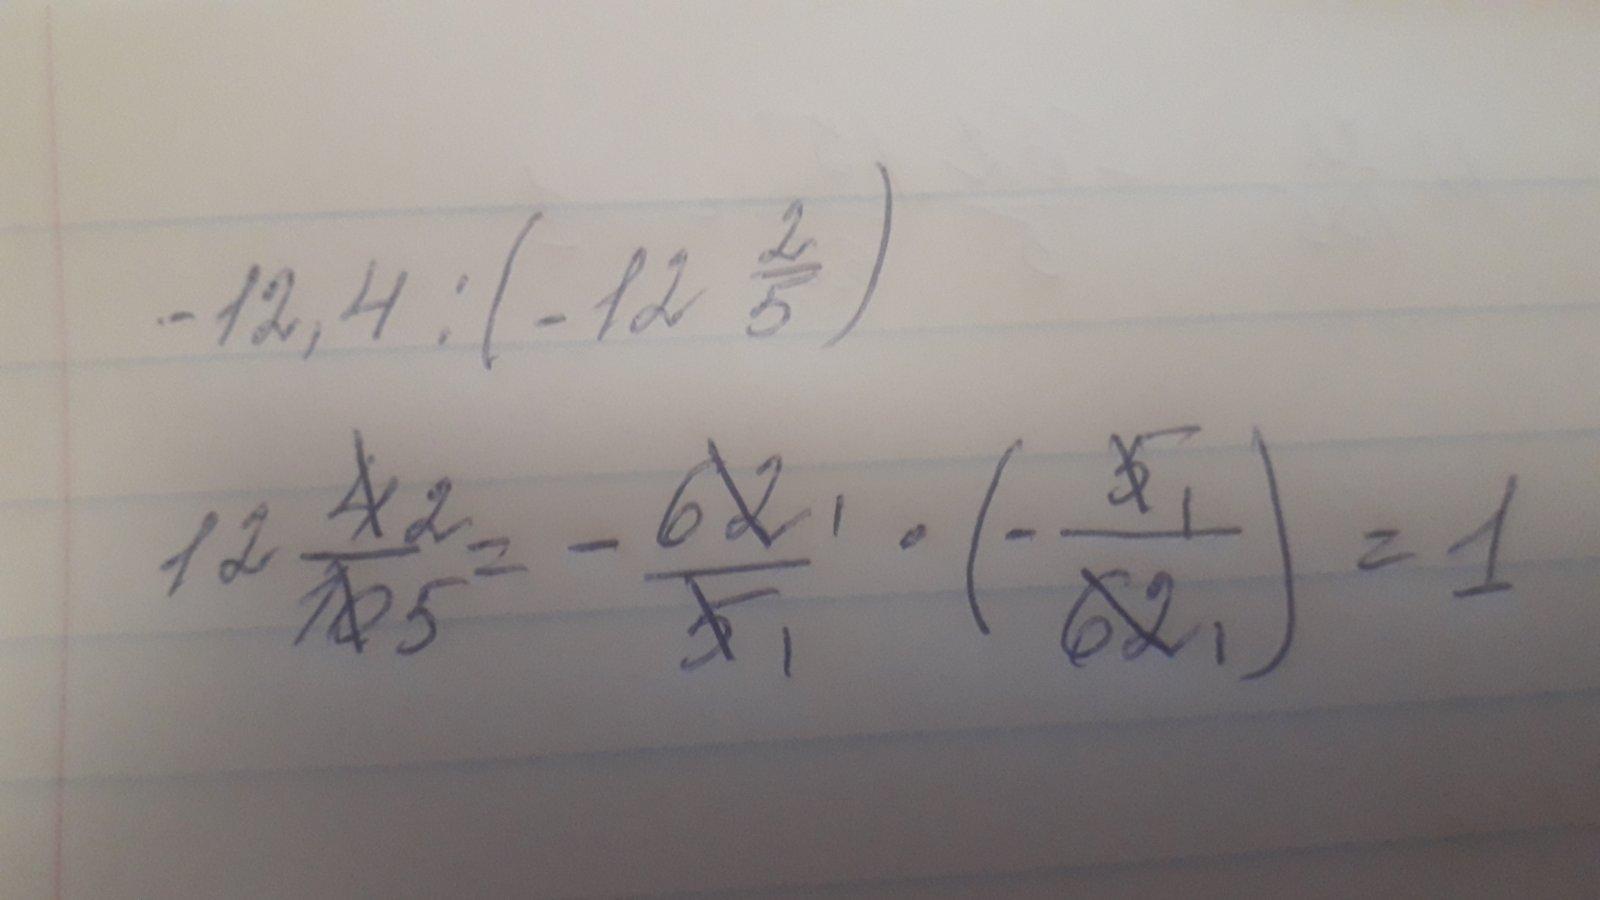 -12,4 : (-12 2/5)
12 4 2/10 5 = - 62 1/5 1 · (- 5 1/62 1) = 1